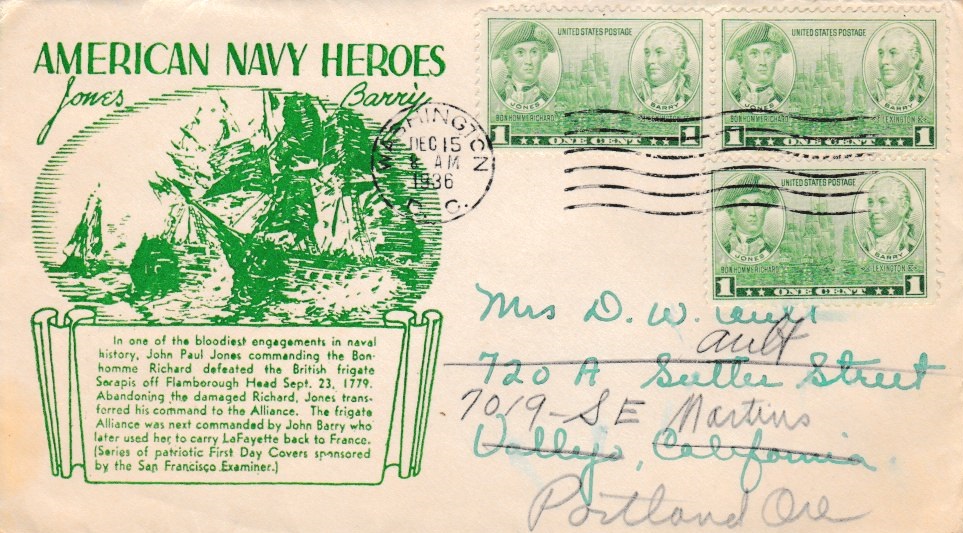 AMERICAN NAVY HEROES
Jones Barry
WASHINGTON
DEC 15
AM
1936
D. C.
UNITED STATES POSTAGE
JONES BARRY
BON HOMME RICHARD LEXINGTON
1 ONE CENT 1
UNITED STATES POSTAGE
JONES BARRY
BON HOMME RICHARD LEXINGTON
1 ONE CENT 1
UNITED STATES POSTAGE
JONES BARRY
BON HOMME RICHARD LEXINGTON
1 ONE CENT 1
In one of the bloodiest engagements in naval
history, John Paul Jones commanding the Bon-
homme Richard defeated the British frigate
Serapis off Flamborough Head Sept. 23, 1779.
Abandoning the damaged Richard, Jones trans-
ferred his command to the Alliance. The frigate
Alliance was next commanded by John Barry who
later used her to carry LaFayette back to France.
(Series of patriotic First Day Covers sponsored
by the San Francisco Examiner.)
Mrs D. W. Ault
ault
720 A Sutter Street
7019-SE Martins
Vallejo, California
Portland Ore